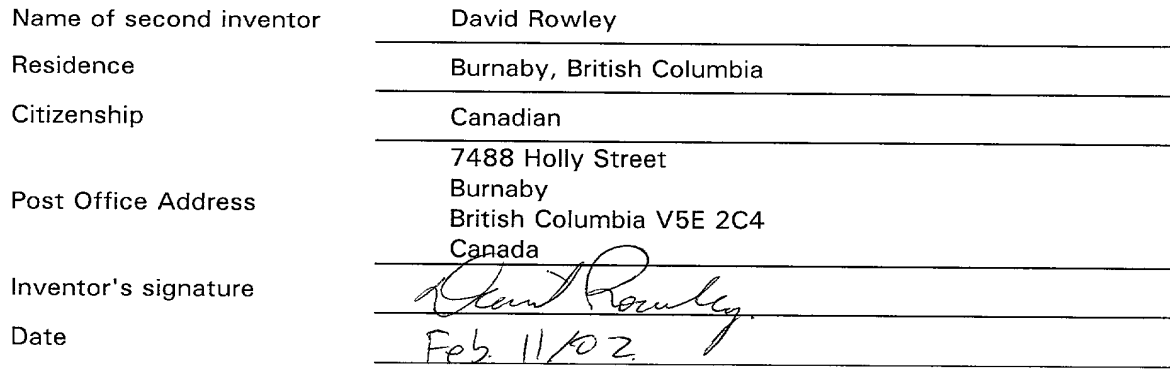 Name of second inventor David Rowley
Residence Burnaby, British Columbia
Citizenship Canadian
7488 Holly Street
Burnaby
Post Office Address
British Columbia V5E 2C4
Canada
Inventor's signature David Rowley.
Date Feb. 11/02